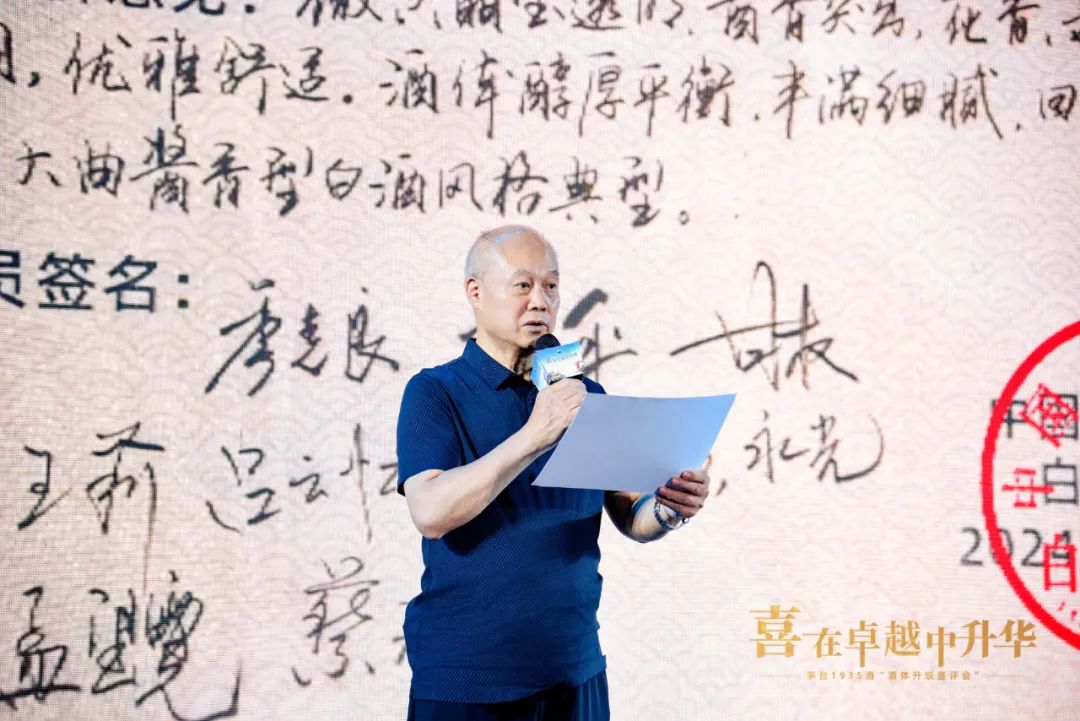 微黄晶莹透明，酱香突出，花香，
，优雅舒适。酒体醇厚平衡，丰满细腻，回
大曲酱香型白酒风格典型。
员签名：
季克良
王莉 吕云怀 永光
孟望霓 蔡
中国
白
2024
喜在卓越中升华
茅台1935酒“酒体升级鉴评会”